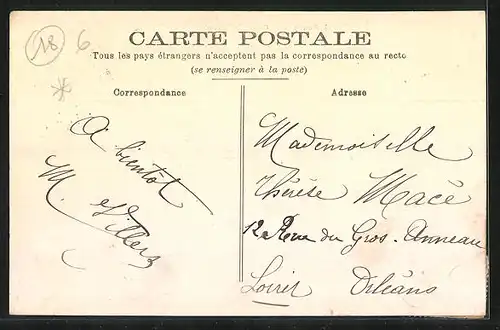 18 6
CARTE POSTALE
Tous les pays étrangers n'acceptent pas la correspondance au recto
(se renseigner à la poste)
Correspondance
Adresse
A bientot
M. Villers
Mademoiselle
Thérèse Macé
12 Rue du Gros-Anneau
Loiret Orléans